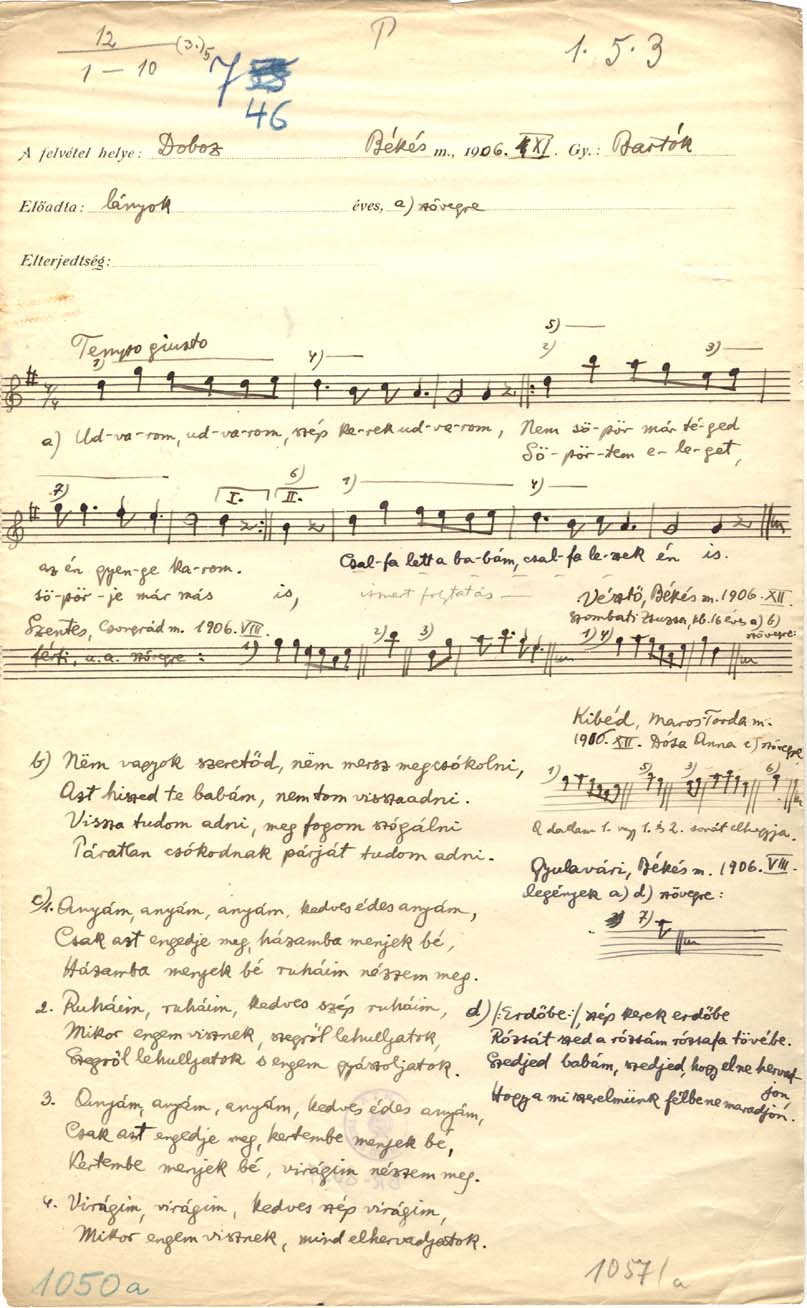 12 (3.)5 P 1. 5. 3
1 – 10 7
46
A felvétel helye: Doboz Békés m., 1906. XI. Gy.: Bartók
Előadta: lányok éves, a) szövegre
Elterjedtség:
Tempo giusto
1) 4) 5) 2) 3)
a) Ud-va-rom, ud-va-rom, szép ke-rek ud-va-rom, Nem sö-pör már té-ged
Sö-pör-tem e-le-get,
7) I. 6) II. 1) 4)
az én gyen-ge ka-rom. Csal-fa lett a ba-bám, csal-fa le-szek én is.
sö-pör-je már más is, ismert folytatás —
Vésztő, Békés m. 1906. XII.
Szentes, Csongrád m. 1906. VIII. Szombati Zsuzsa, kb. 16 éves a) b)
szövegre:
férfi, u. a. szövegre: 1) 2) 3) 1) 4)
Kibéd, Maros-Torda m.
1906. XII. Dósa Anna c) szövegre
1) 5) 3) 6)
b) Nëm vagyok szeretőd, nëm mersz megcsókolni,
Azt hiszed te babám, nem tom visszaadni.
Vissza tudom adni, meg fogom szógálni
Páratlan csókodnak párját tudom adni.
A dallam 1. 1. és 2. sorát elhagyja.
Gyulavári, Békés m. 1906. VIII.
legények a) d) szövegre:
7)
c) 1. Anyám, anyám, anyám, kedves édes anyám,
Csak azt engedje meg, házamba menjek bé,
Házamba menjek bé ruháim nézzem meg.
2. Ruháim, ruháim, kedves szép ruháim,
Mikor engem visznek, szegről lehulljatok,
Szegről lehulljatok s engem gyászoljatok.
d) /:Erdőbe:/, szép kerek erdőbe
Rózsát szed a rózsám rózsafa tövébe.
Szedjed babám, szedjed, hogy el ne hervad-
jon,
Hogy a mi szerelmünk félbe ne maradjon.
3. Anyám, anyám, anyám, kedves édes anyám,
Csak azt engedje meg, kertembe menjek bé,
Kertembe menjek bé, virágim nézzem meg.
4. Virágim, virágim, kedves szép virágim,
Mikor engem visznek, mind elhervadjatok.
1050a 1057/a